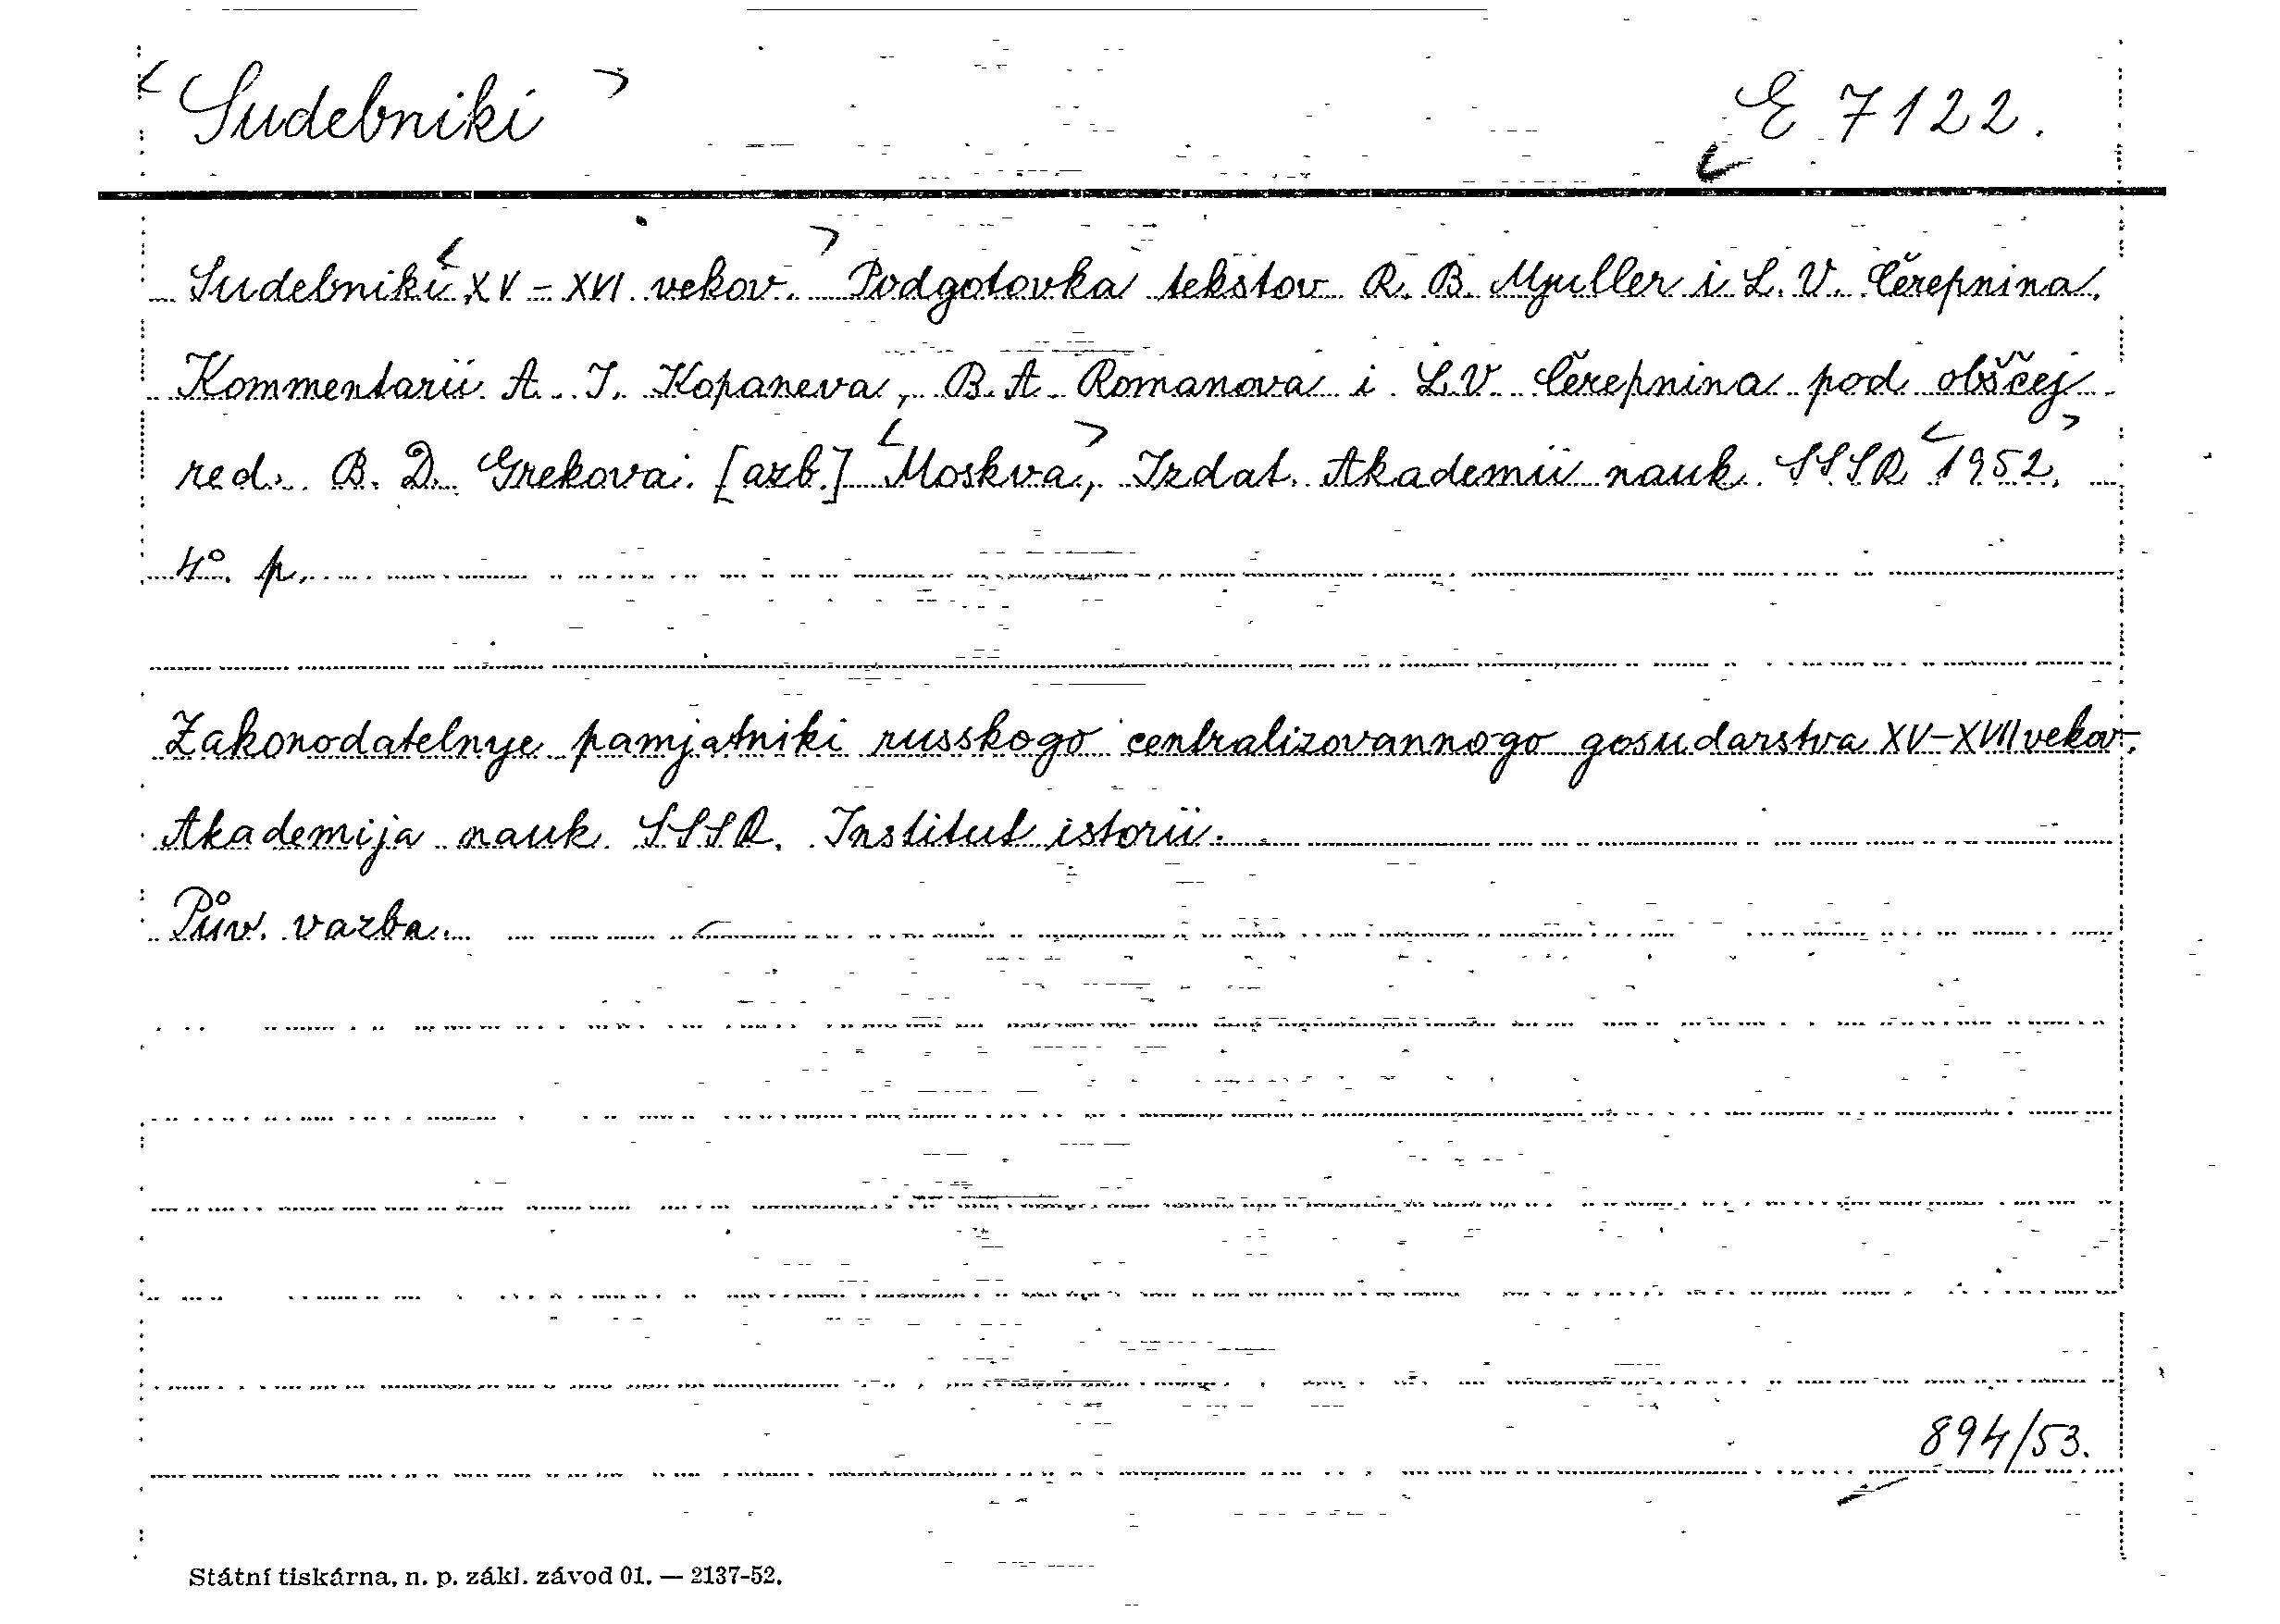 Sudebniki E 7122.
Sudebniki XV - XVI vekov. Podgotovka tekstov R. B. Mjuller i L. V. Čerepnina.
Kommentarii A. I. Kopaneva, B. A. Romanova i L. V. Čerepnina pod obščej
red. B. D. Grekova. [azb.] Moskva, Izdat. Akademii nauk SSSR 1952.
4°. p.
Zakonodatelnye pamjatniki russkogo centralizovannogo gosudarstva XV-XVII vekov.
Akademija nauk SSSR. Institut istorii.
Pův. vazba.
894/53.
Státní tiskárna, n. p. zákl. závod 01. — 2137-52.